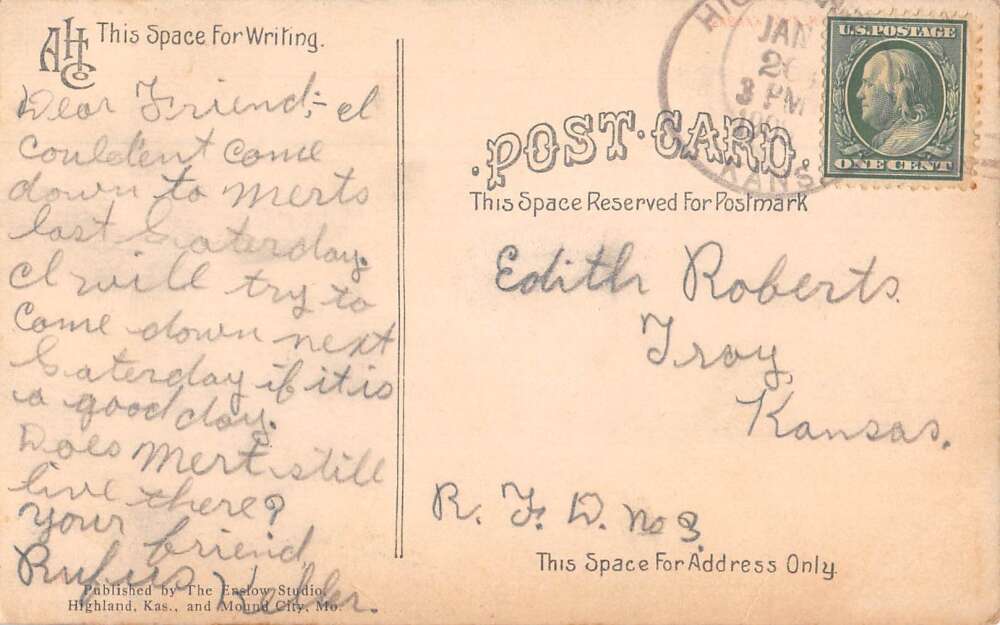 AHCo
This Space For Writing.
Dear Friend;- I
couldent come
down to Merts
last Saterday.
I will try to
come down next
Saterday if it is
a good day.
Does Mert still
live there?
your friend,
Rufus Keller.
Published by The Enslow Studio,
Highland, Kas., and Mound City, Mo.
JAN
3 PM
KANS
U.S. POSTAGE
ONE CENT
POST-CARD.
This Space Reserved For Postmark
Edith Roberts.
Troy,
Kansas.
R. F. D. No 3.
This Space For Address Only.